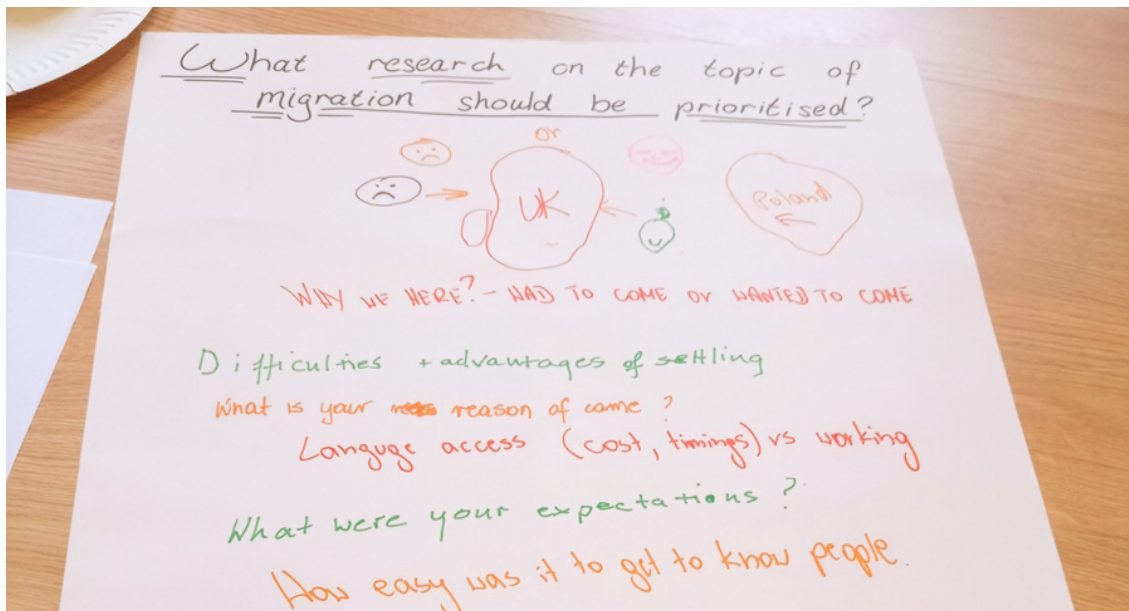 What research on the topic of
migration should be prioritised?
or
UK
Poland
WHY WE HERE? - HAD TO COME OR WANTED TO COME
Difficulties + advantages of settling
What is your reason of came ?
Languge access (cost, timings) vs working
What were your expectations ?
How easy was it to get to know people.